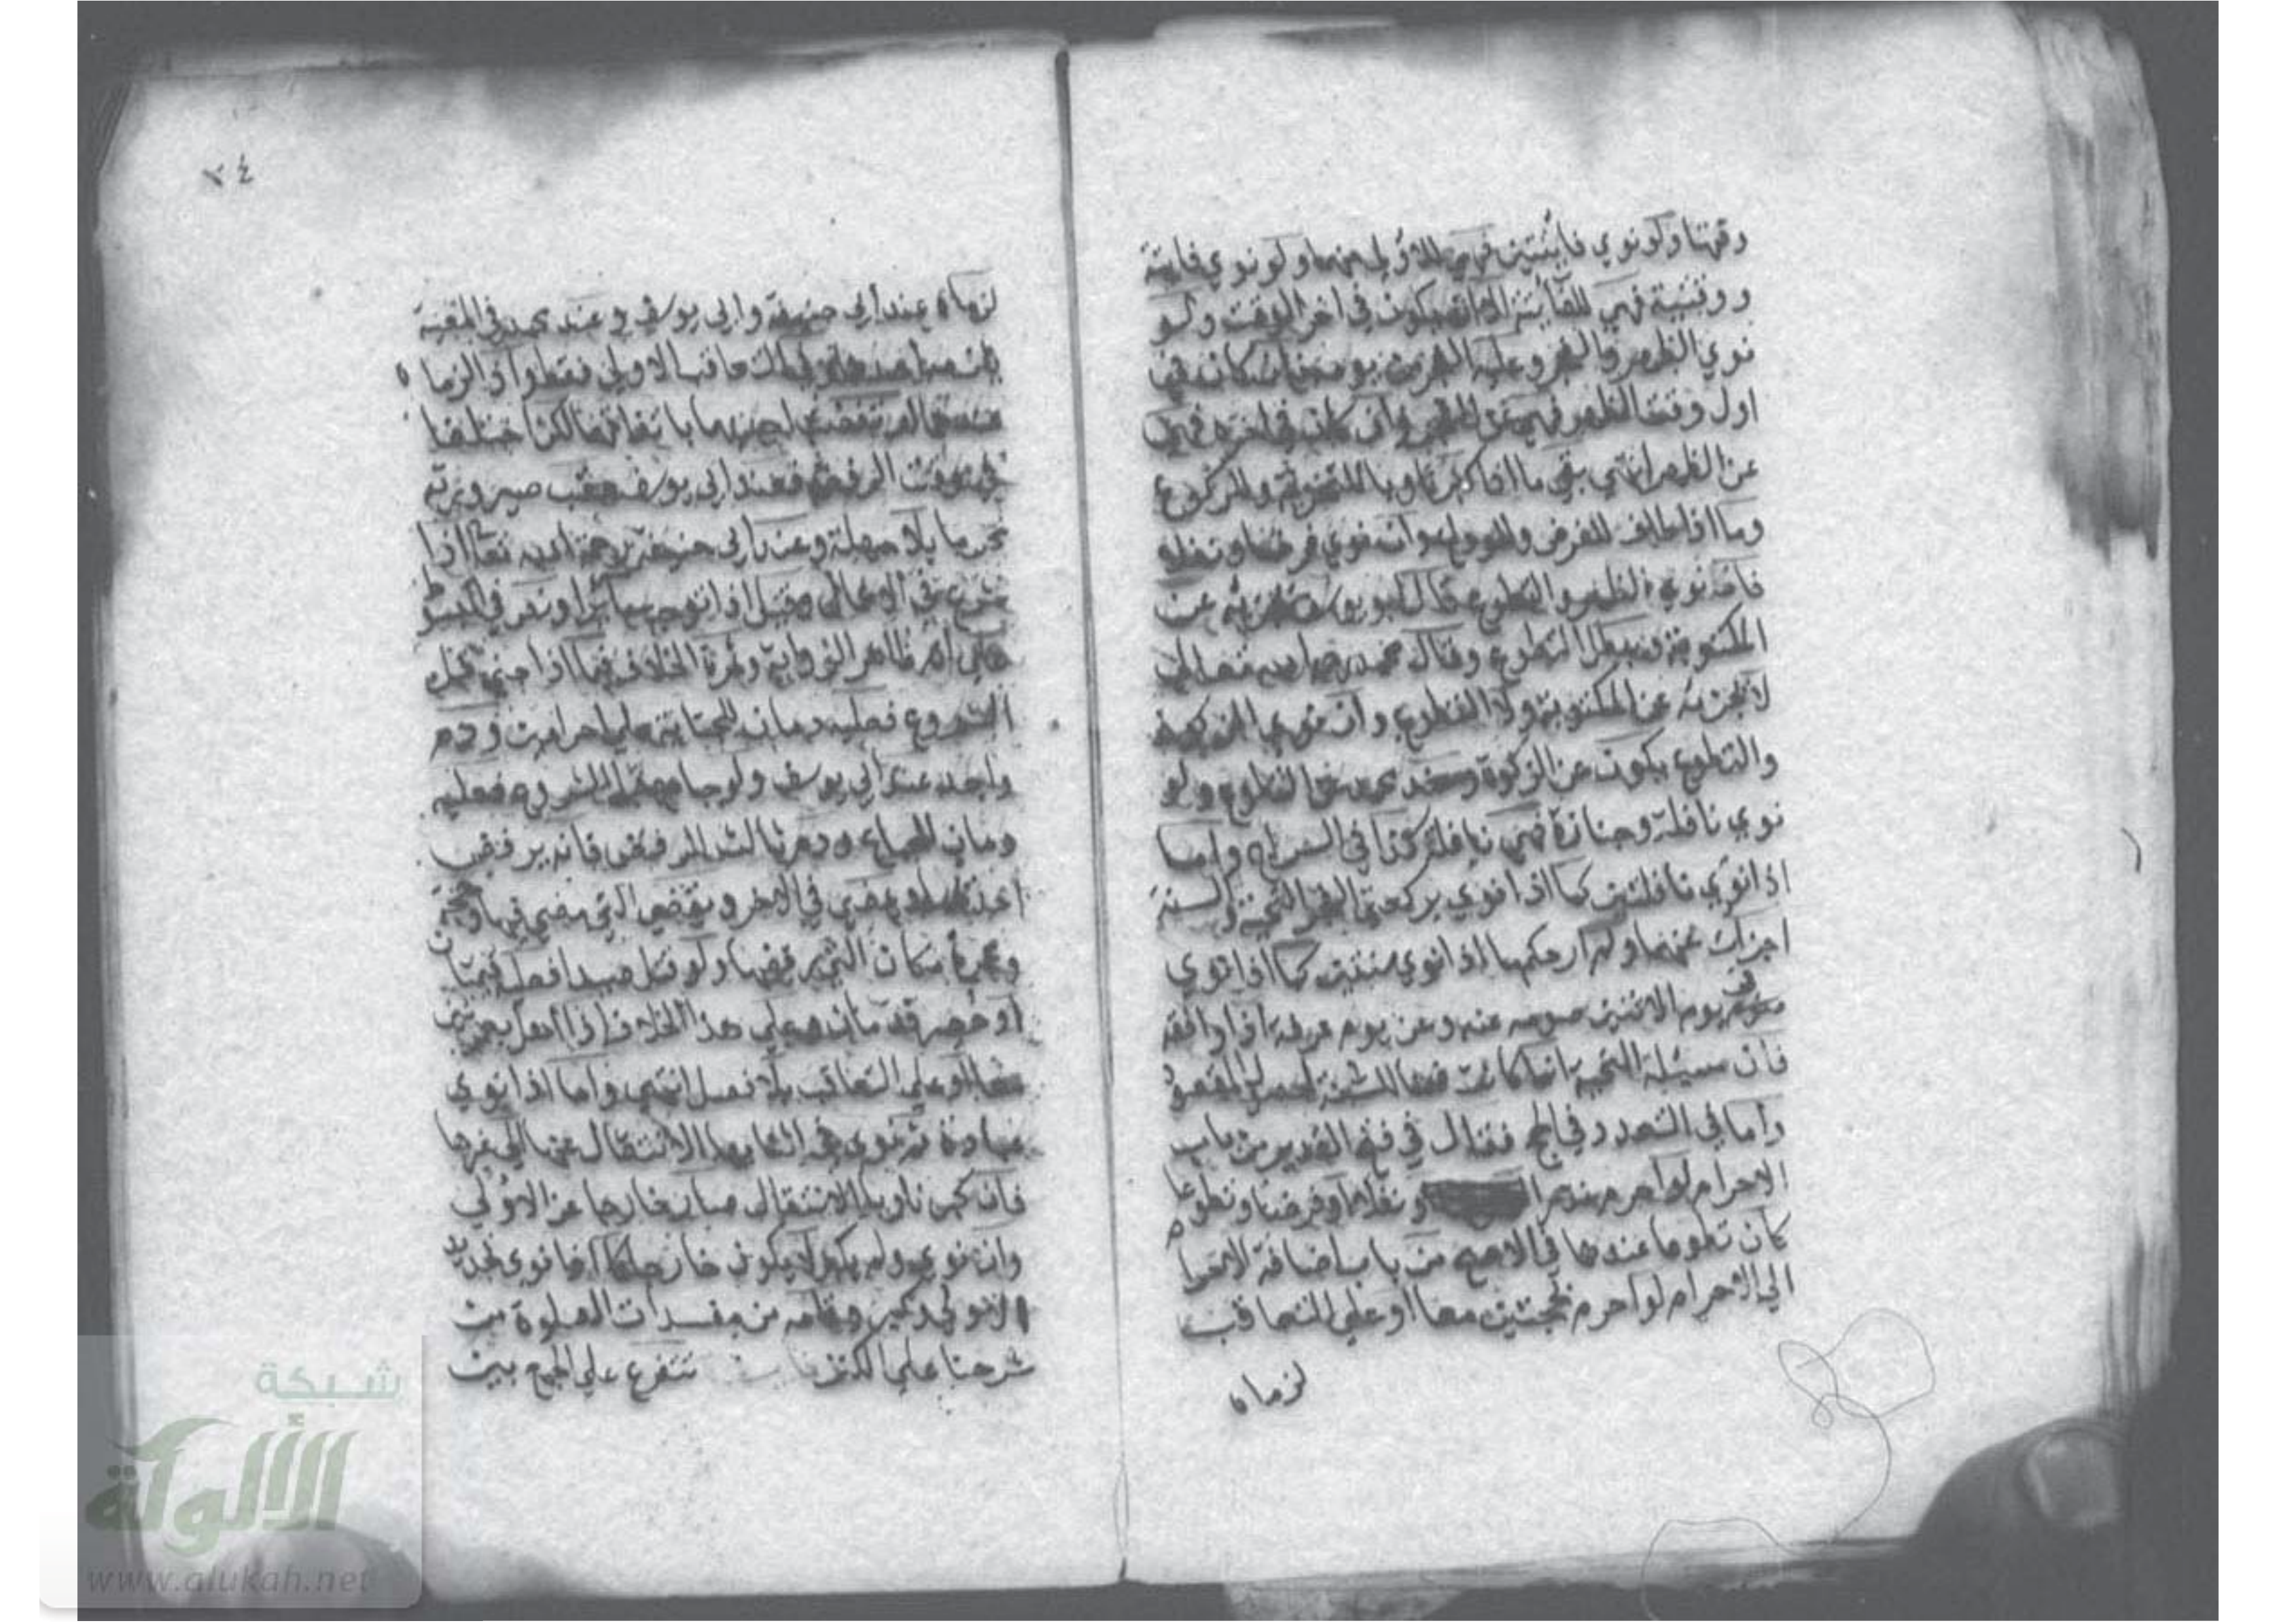 وقتها ولو نوي فايتتين فهي للاولي منهما ولو نوي فايتة
ووقتية فهي للفايتة الا ان يكون في اخر الوقت ولو
نوي الظهر والفجر وعليه الفجر من يومه فان كان في
اول وقت الظهر فهي عن الفجر وان كان في اخره فهي
عن الظهر انتهي بقي ما اذا كبر ناويا للتحريمة وللركوع
وما اذا طاف للفرض وللوداع وان نوي فرضا ونفلا
فان نوي الظهر والتطوع قال ابو يوسف تجزيه عن
المكتوبة ويبطل التطوع وقال محمد رحمه الله تعالي
لا تجزيه عن المكتوبة ولا التطوع وان نوي الزكوة
والتطوع يكون عن الزكوة وعند محمد عن التطوع ولو
نوي نافلة وجنازة فهي نافلة كذا في السراج واما
اذا نوي نافلتين كما اذا نوي بركعتي الفجر التحية والسنة
اجزات عنهما ولم ار حكم ما اذا نوي سنتين كما اذا نوي
في يوم الاثنين صومه عنه وعن يوم عرفة اذا وافقه
فان مسئلة التحية انما كانت ضمنا للسنة لحصول المقصود
واما في التعدد في الحج فقال في فتح القدير من باب
الاحرام لو احرم نذرا ونفلا او فرضا وتطوعا
كان تطوعا عندهما في الاصح من باب اضافة الاحرام
الي الاحرام لو احرم بحجتين معا او علي التعاقب
لزماه
٢٤
لزماه عند ابي حنيفة وابي يوسف وعند محمد في المعية
يلزمه احدهما وفي التعاقب الاولي فقط واذا لزماه
عندهما ارتفضت احدهما باتفاقهما لكن اختلفا
في وقت الرفض فعند ابي يوسف عقب صيرورته
محرما بلا مهلة وعند ابي حنيفة رحمة الله تعالي اذا
شرع في الاعمال وقيل اذا توجه سائرا ونص في المبسوط
علي انه ظاهر الرواية وثمرة الخلاف فيما اذا جني قبل
الشروع فعليه دمان للجناية علي احرامين ودم
واحد عند ابي يوسف ولو جامع قبل الشروع فعليه
دمان للجماع ودم ثالث للرفض فانه يرفض
احدهما ويمضي في الاخر ويقضي التي مضي فيها وحجة
وعمرة مكان التي رفضها ولو قتل صيدا فعليه قيمتان
او احصر فدمان وعلي هذا الخلاف اذا اهل بعمرتين
معا او علي التعاقب بلا فصل انتهي واما اذا نوي
عبادة ثم نوي في اثنائها الانتقال عنها الي غيرها
فان كبر ناويا للانتقال صار خارجا عن الاولي
وان نوي ولم يكبر لا يكون خارجا كما اذا نوي تجديد
الاولي وكبر وتمامه في مفسدات الصلوة من
شرحنا علي الكنز تتفرع علي الجمع بين
شبكة
الألوكة
www.alukah.net